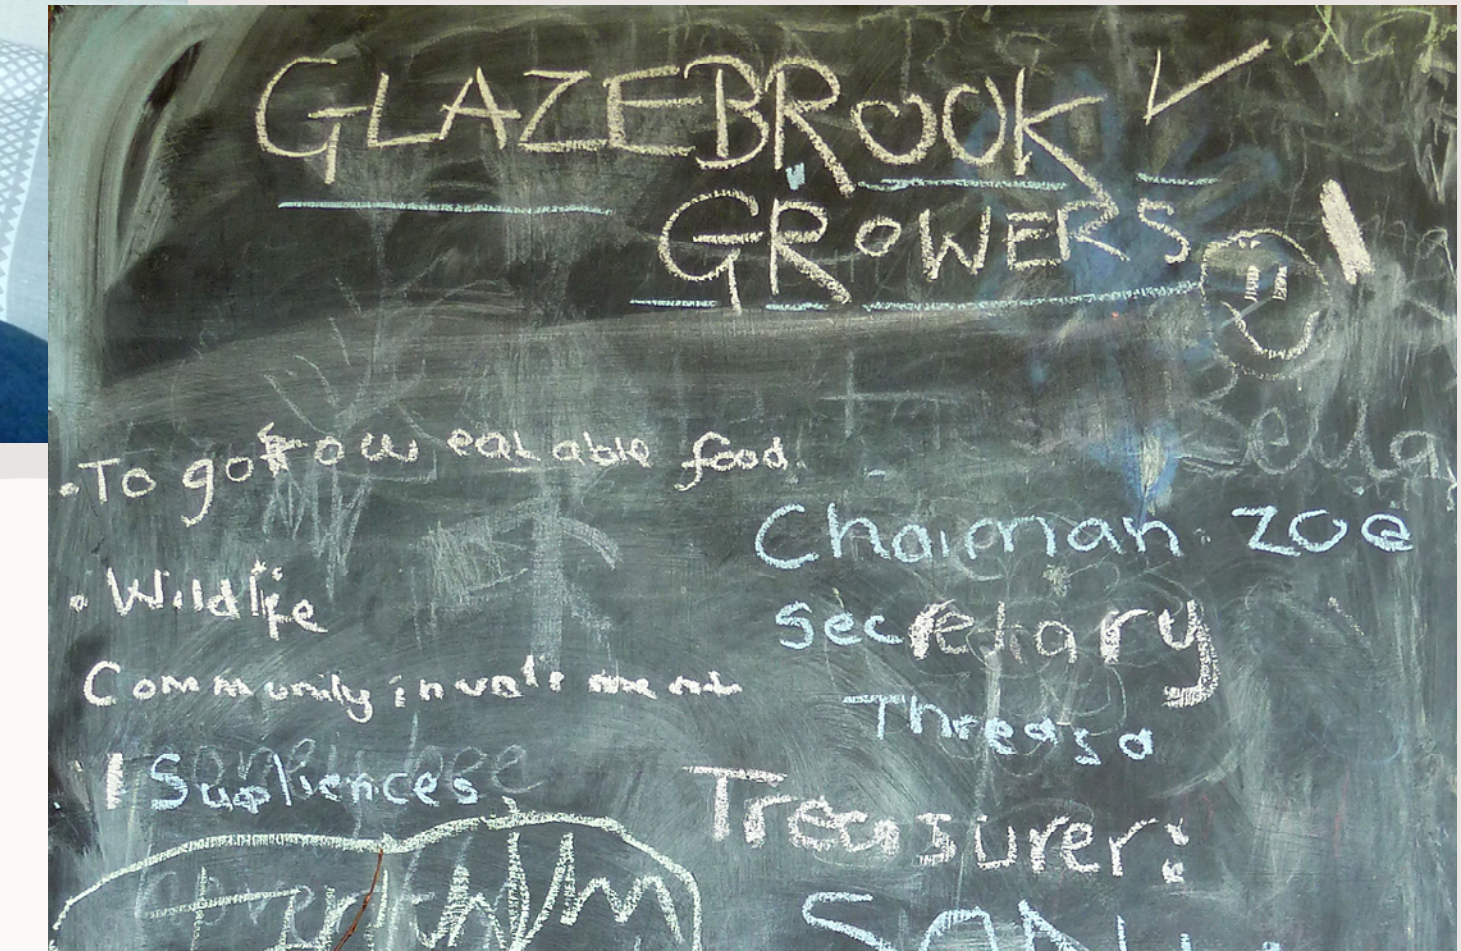 GLAZEBROOK
GROWERS
• To gorow eatable food.
• Wildlife
Community
Supliences
Bella
Chairman. Zoe
Secretary
Threasa
Treasurer: